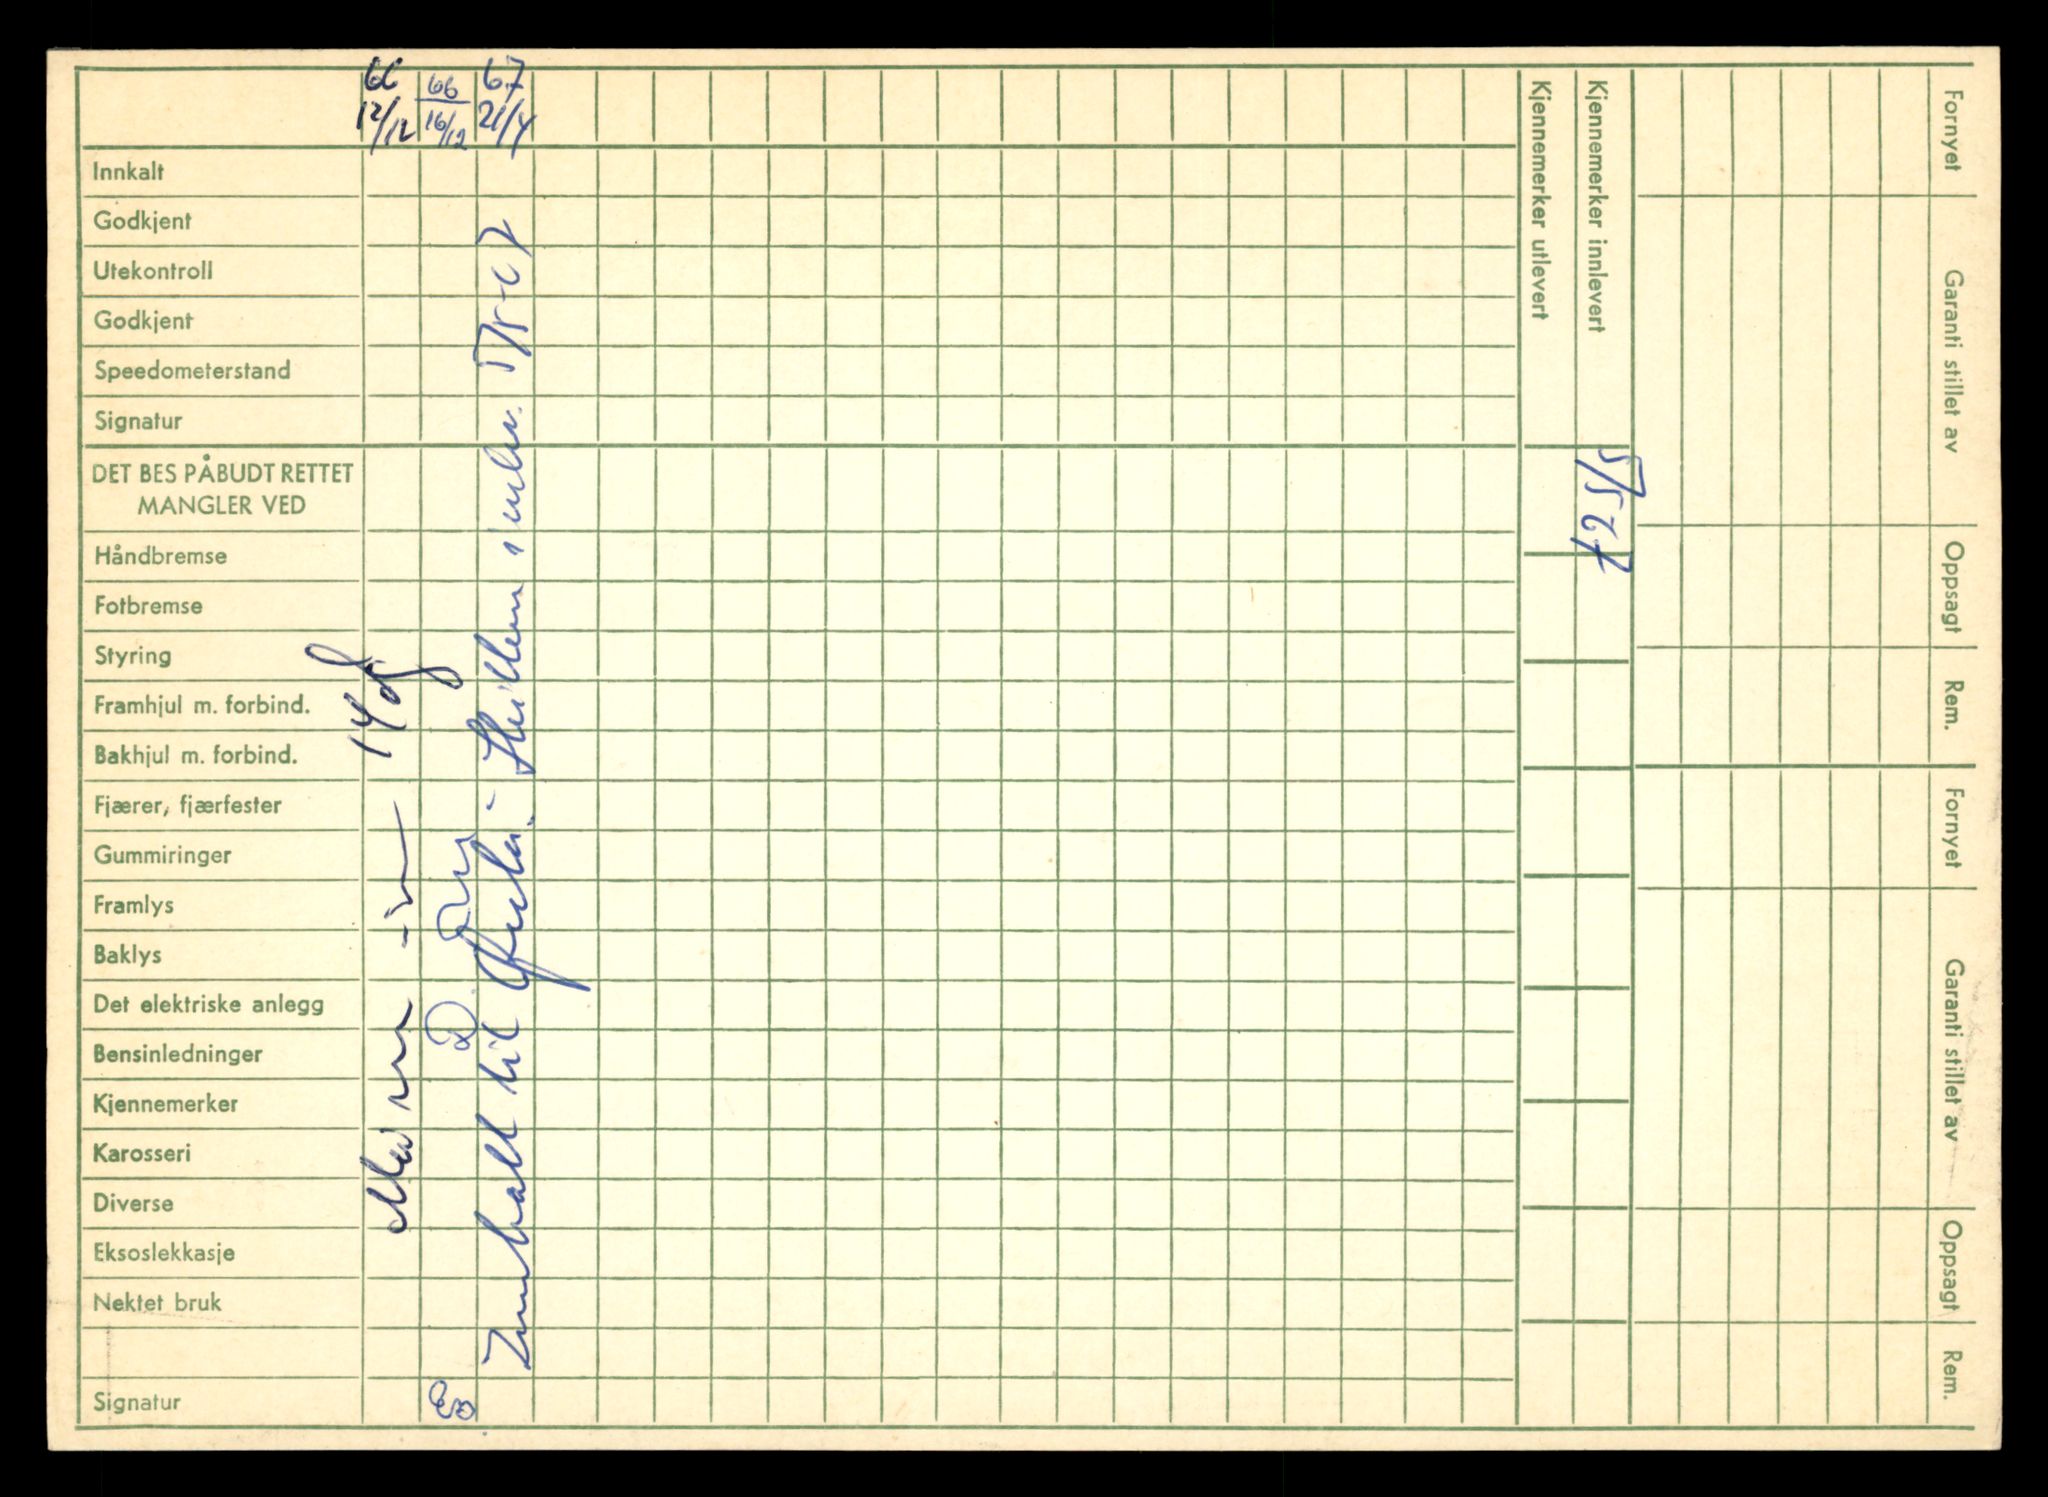 66 12/12
66 16/12
67 21/4
Innkalt
Godkjent
Utekontroll
Godkjent
Speedometerstand
Signatur
DET BES PÅBUDT RETTET
MANGLER VED
Håndbremse
Fotbremse
Styring
Framhjul m. forbind.
Bakhjul m. forbind.
Fjærer, fjærfester
Gummiringer
Framlys
Baklys
Det elektriske anlegg
Bensinledninger
Kjennemerker
Karosseri
Diverse
Eksoslekkasje
Nektet bruk
Signatur
til
Kjennemerker utlevert
Kjennemerker innlevert
Fornyet
Garanti stillet av
Oppsagt
Rem.
Fornyet
Garanti stillet av
Oppsagt
Rem.